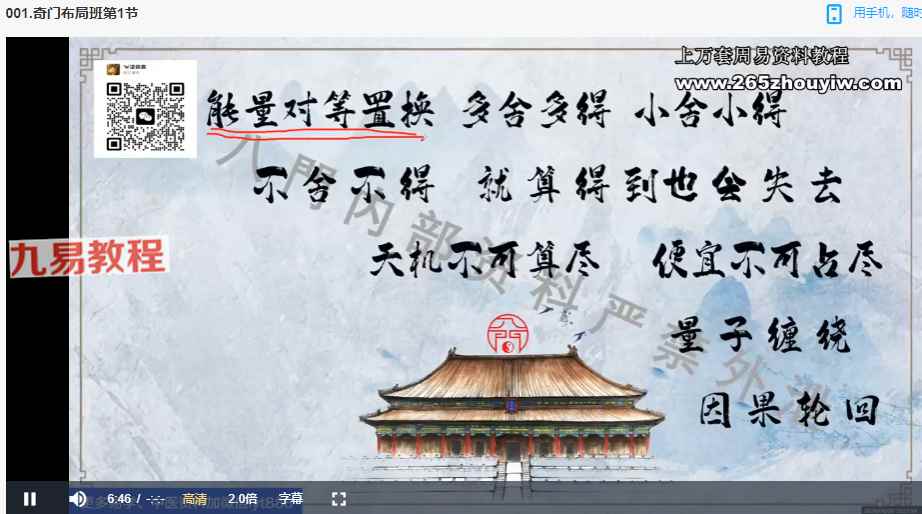 001.奇门布局班第1节
用手机，随时
上万套周易资料教程
www.265zhouyiw.com
能量对等置换 多舍多得 小舍小得
不舍不得 就算得到也会失去
天机不可算尽 便宜不可占尽
量子缠绕
因果轮回
八門内部资料严禁外
九易教程
八門
6:46 / -:-
高清
2.0倍
字幕